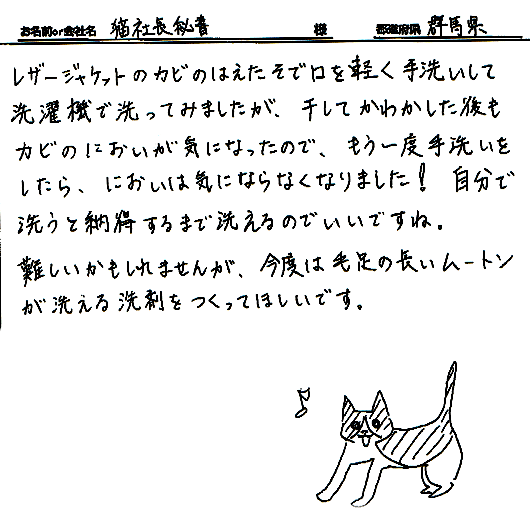 お名前or会社名 猫社長秘書 様 都道府県 群馬県
レザージャケットのカビのはえたそで口を軽く手洗いして
洗濯機で洗ってみましたが、干してかわかした後も
カビのにおいが気になったので、もう一度手洗いを
したら、においは気にならなくなりました! 自分で
洗うと納得するまで洗えるのでいいですね。
難しいかもしれませんが、今度は毛足の長いムートン
が洗える洗剤をつくってほしいです。